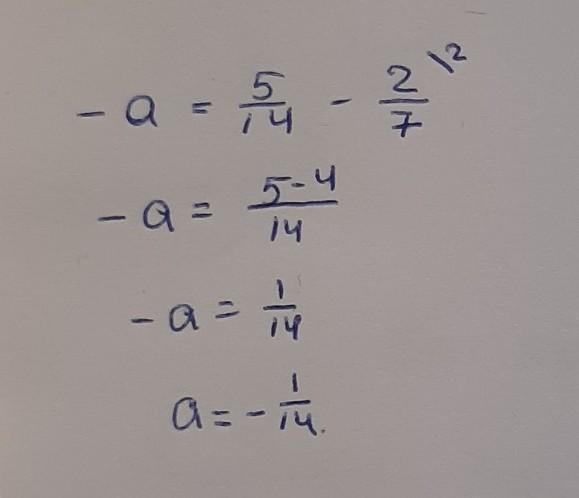 -a = 5/14 - 2/7 \2
-a = 5-4/14
-a = 1/14
a = -1/14.